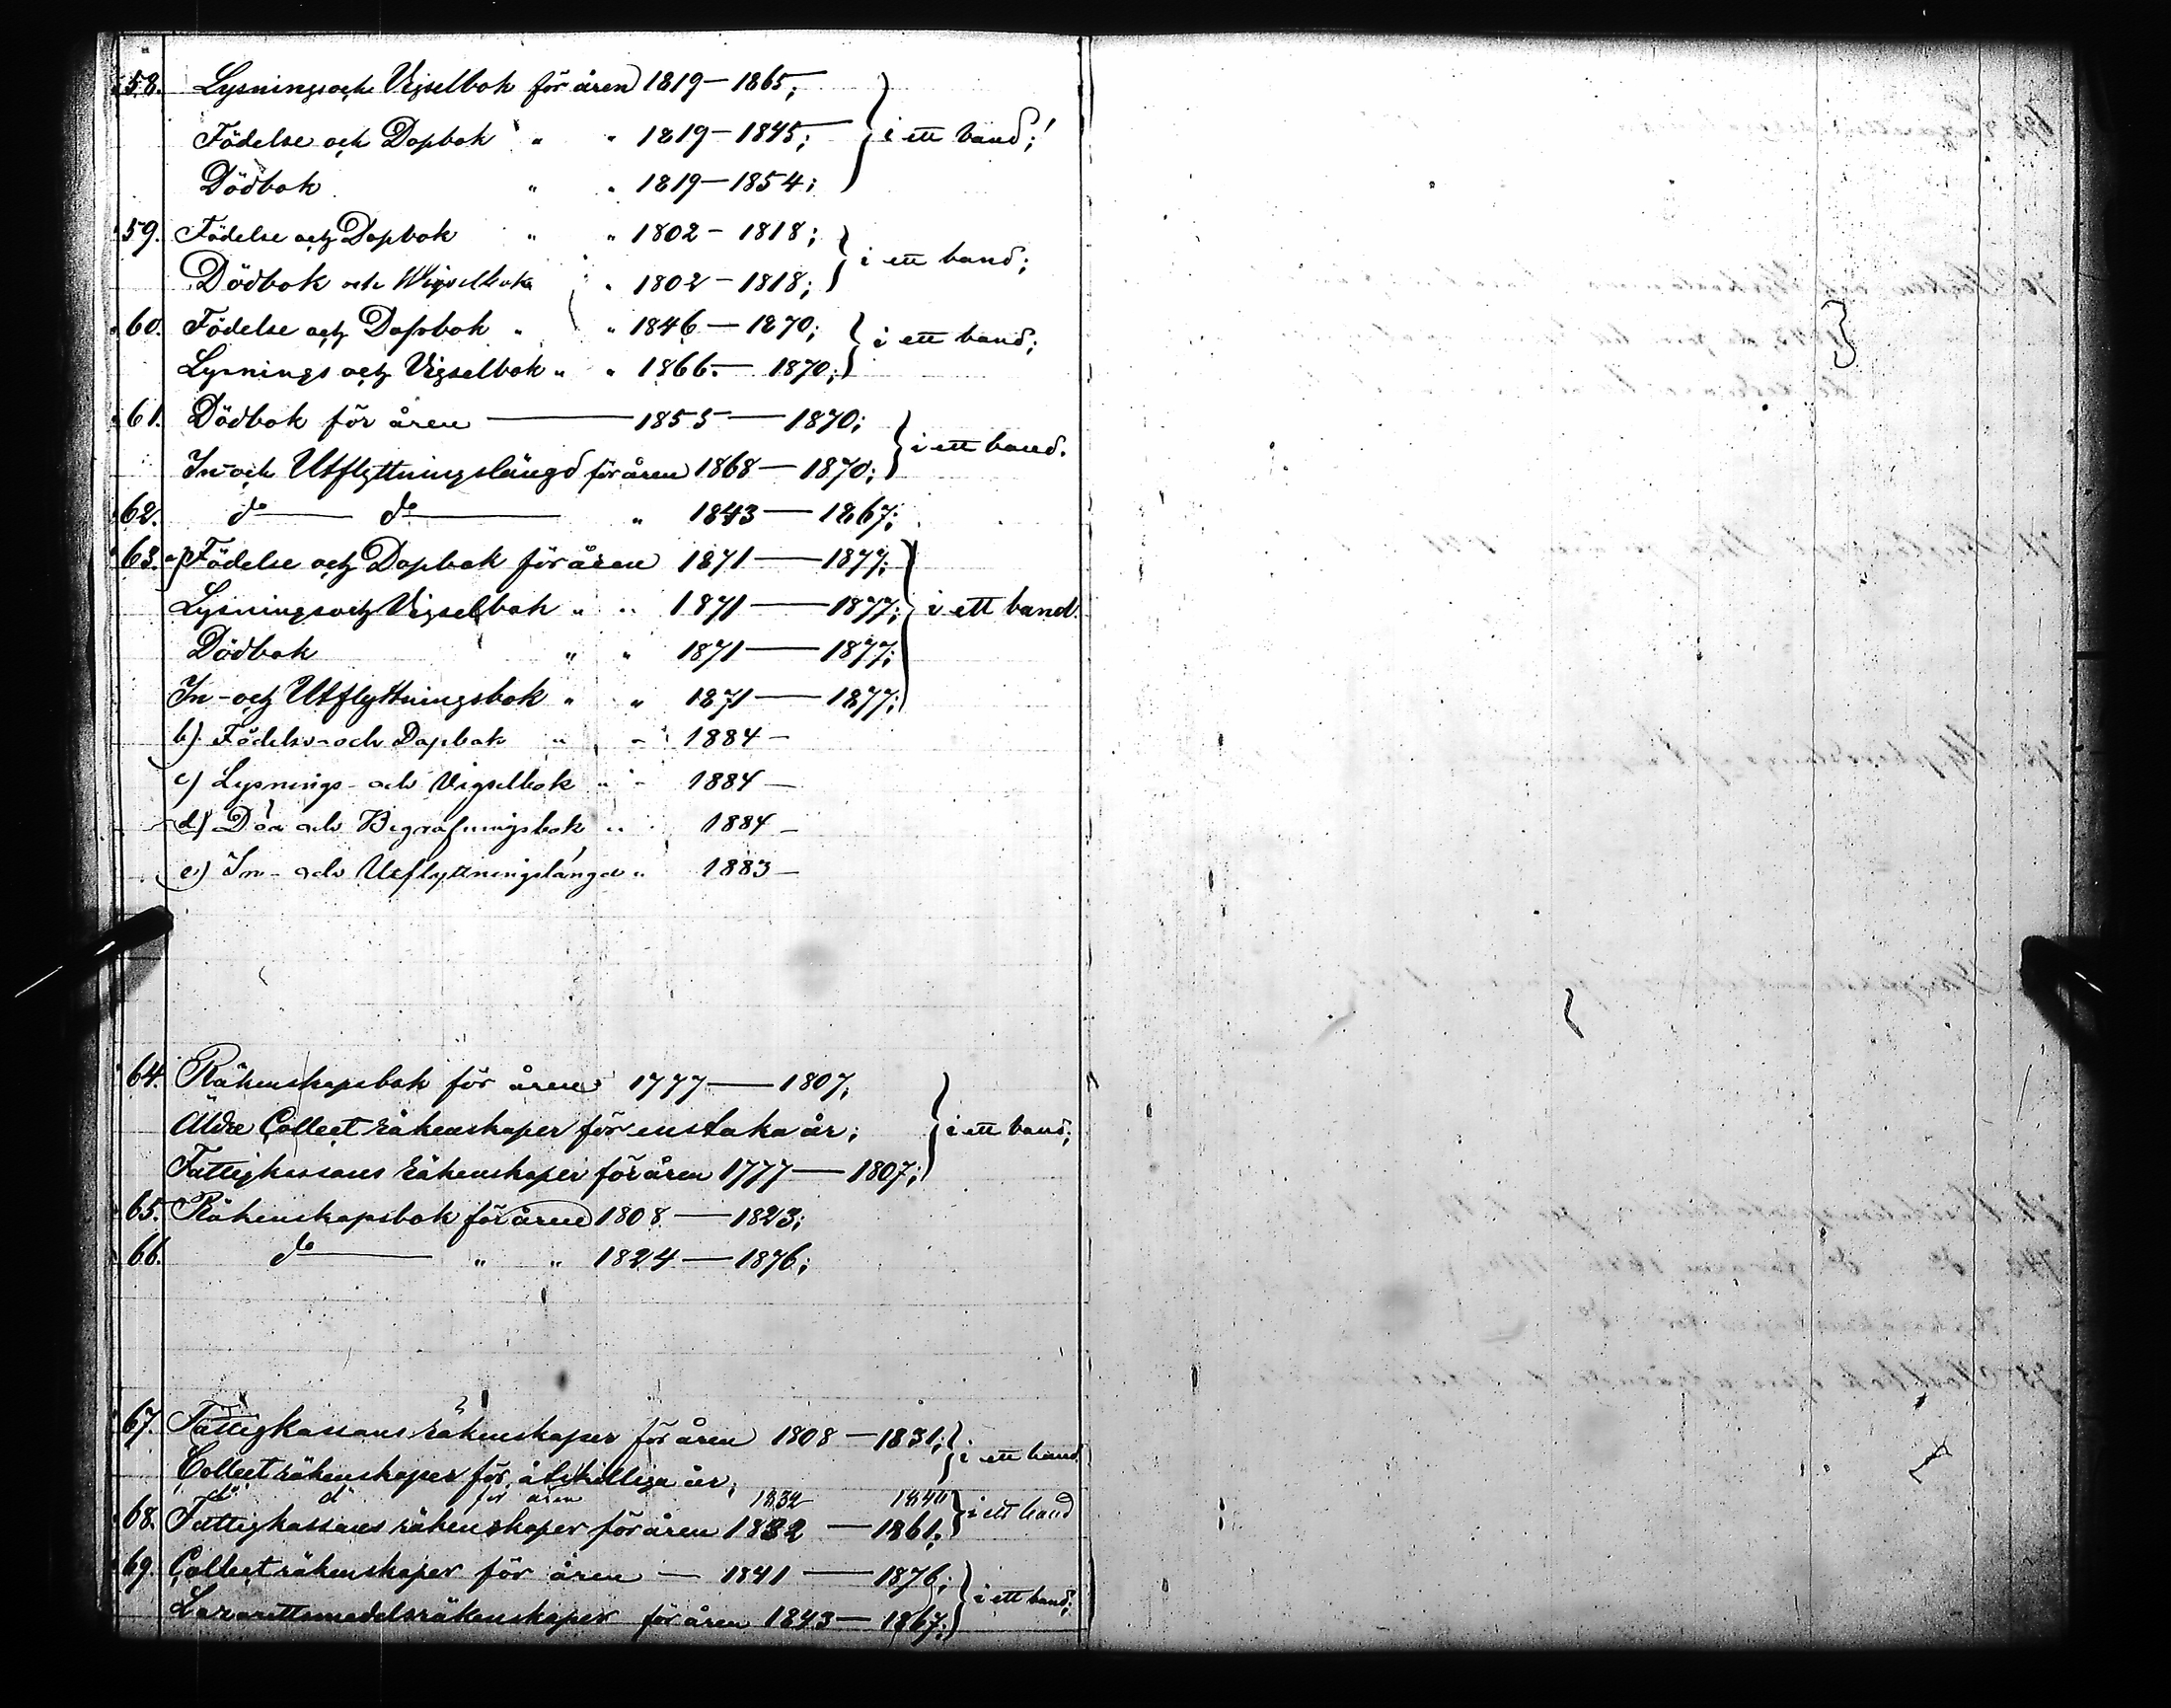 58. Lysnings och Vigselbok för åren 1819 – 1865;
Födelse och Dopbok " " 1819 – 1845; } i ett band;
Dödbok " " 1819 – 1854;
59. Födelse och Dopbok " " 1802 – 1818; } i ett band;
Dödbok och Wigselbok " 1802 – 1818;
60. Födelse och Dopbok " " 1846 – 1870; } i ett band;
Lysnings och Vigselbok " " 1866 – 1870;
61. Dödbok för åren — 1855 — 1870; } i ett band.
In- och Utflyttningslängd för åren 1868 – 1870;
62. do — do — " 1843 — 1867;
63. a) Födelse och Dopbok för åren 1871 — 1877;
Lysnings och Vigselbok " " 1871 — 1877; } i ett band.
Dödbok " " 1871 — 1877;
In- och Utflyttningsbok " " 1871 — 1877;
b) Födelse- och Dopbok " – 1884 –
c) Lysnings- och Vigselbok " – 1884 –
d) Död och Begrafningsbok " 1884 –
e) In- och Utflyttningslängd " 1883 –
64. Räkenskapsbok för åren 1777 — 1807;
Äldre Collect räkenskaper för enstaka år; } i ett band;
Fattigkassans räkenskaper för åren 1777 — 1807;
65. Räkenskapsbok för åren 1808 — 1823;
66. do — " " 1824 — 1876;
67. Fattigkassans räkenskaper för åren 1808 – 1831; } i ett band
Collect räkenskaper för åtskilliga år;
do do för åren 1832 1840 } i ett band
68. Fattigkassans räkenskaper för åren 1832 — 1861;
69. Collect räkenskaper för åren — 1841 — 1876; } i ett band;
Lazarettsmedelsräkenskaper för åren 1843 – 1867;